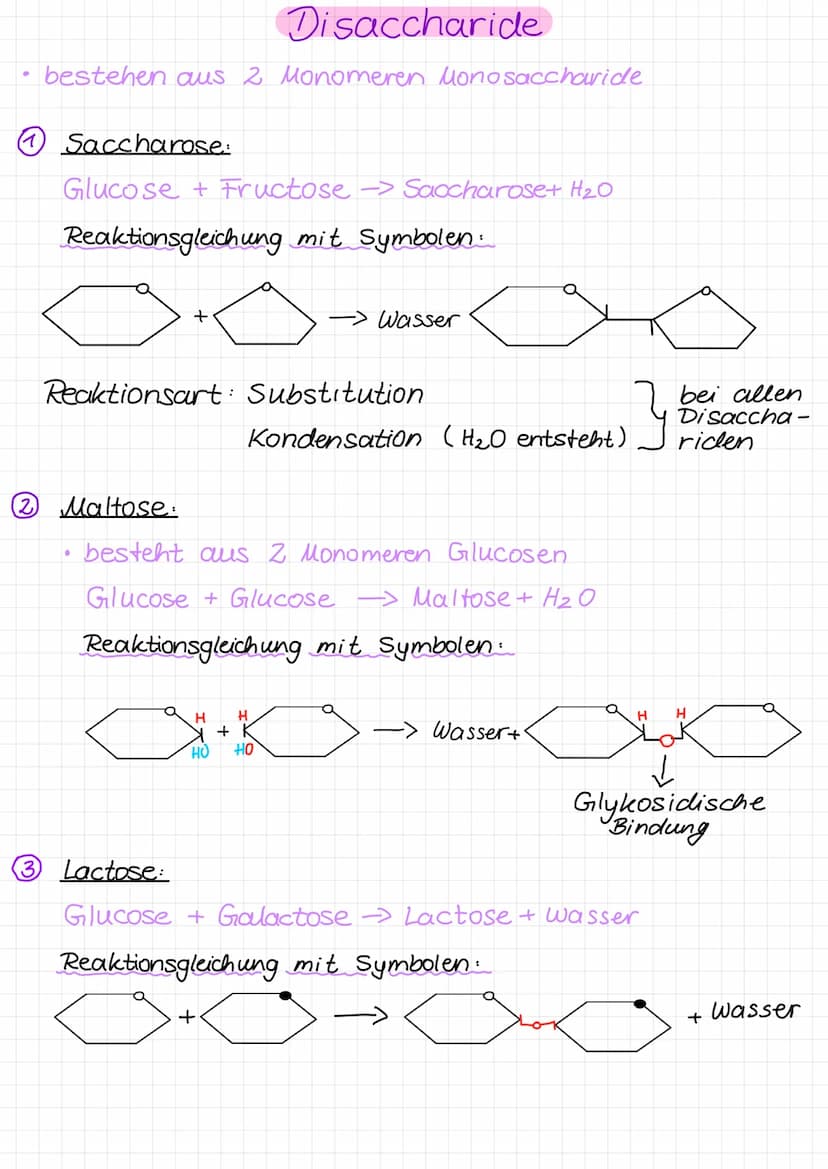 Disaccharide
• bestehen aus 2 Monomeren Monosaccharide
① Saccharose:
Glucose + Fructose -> Saccharose + H₂O
Reaktionsgleichung mit Symbolen:
+ -> Wasser
Reaktionsart: Substitution
Kondensation (H₂O entsteht)
bei allen
Disaccha-
riden
② Maltose:
• besteht aus 2 Monomeren Glucosen
Glucose + Glucose -> Maltose + H₂O
Reaktionsgleichung mit Symbolen:
H + H -> Wasser + H H
HO HO O
Glykosidische
Bindung
③ Lactose:
Glucose + Galactose -> Lactose + Wasser
Reaktionsgleichung mit Symbolen:
+ -> O + Wasser